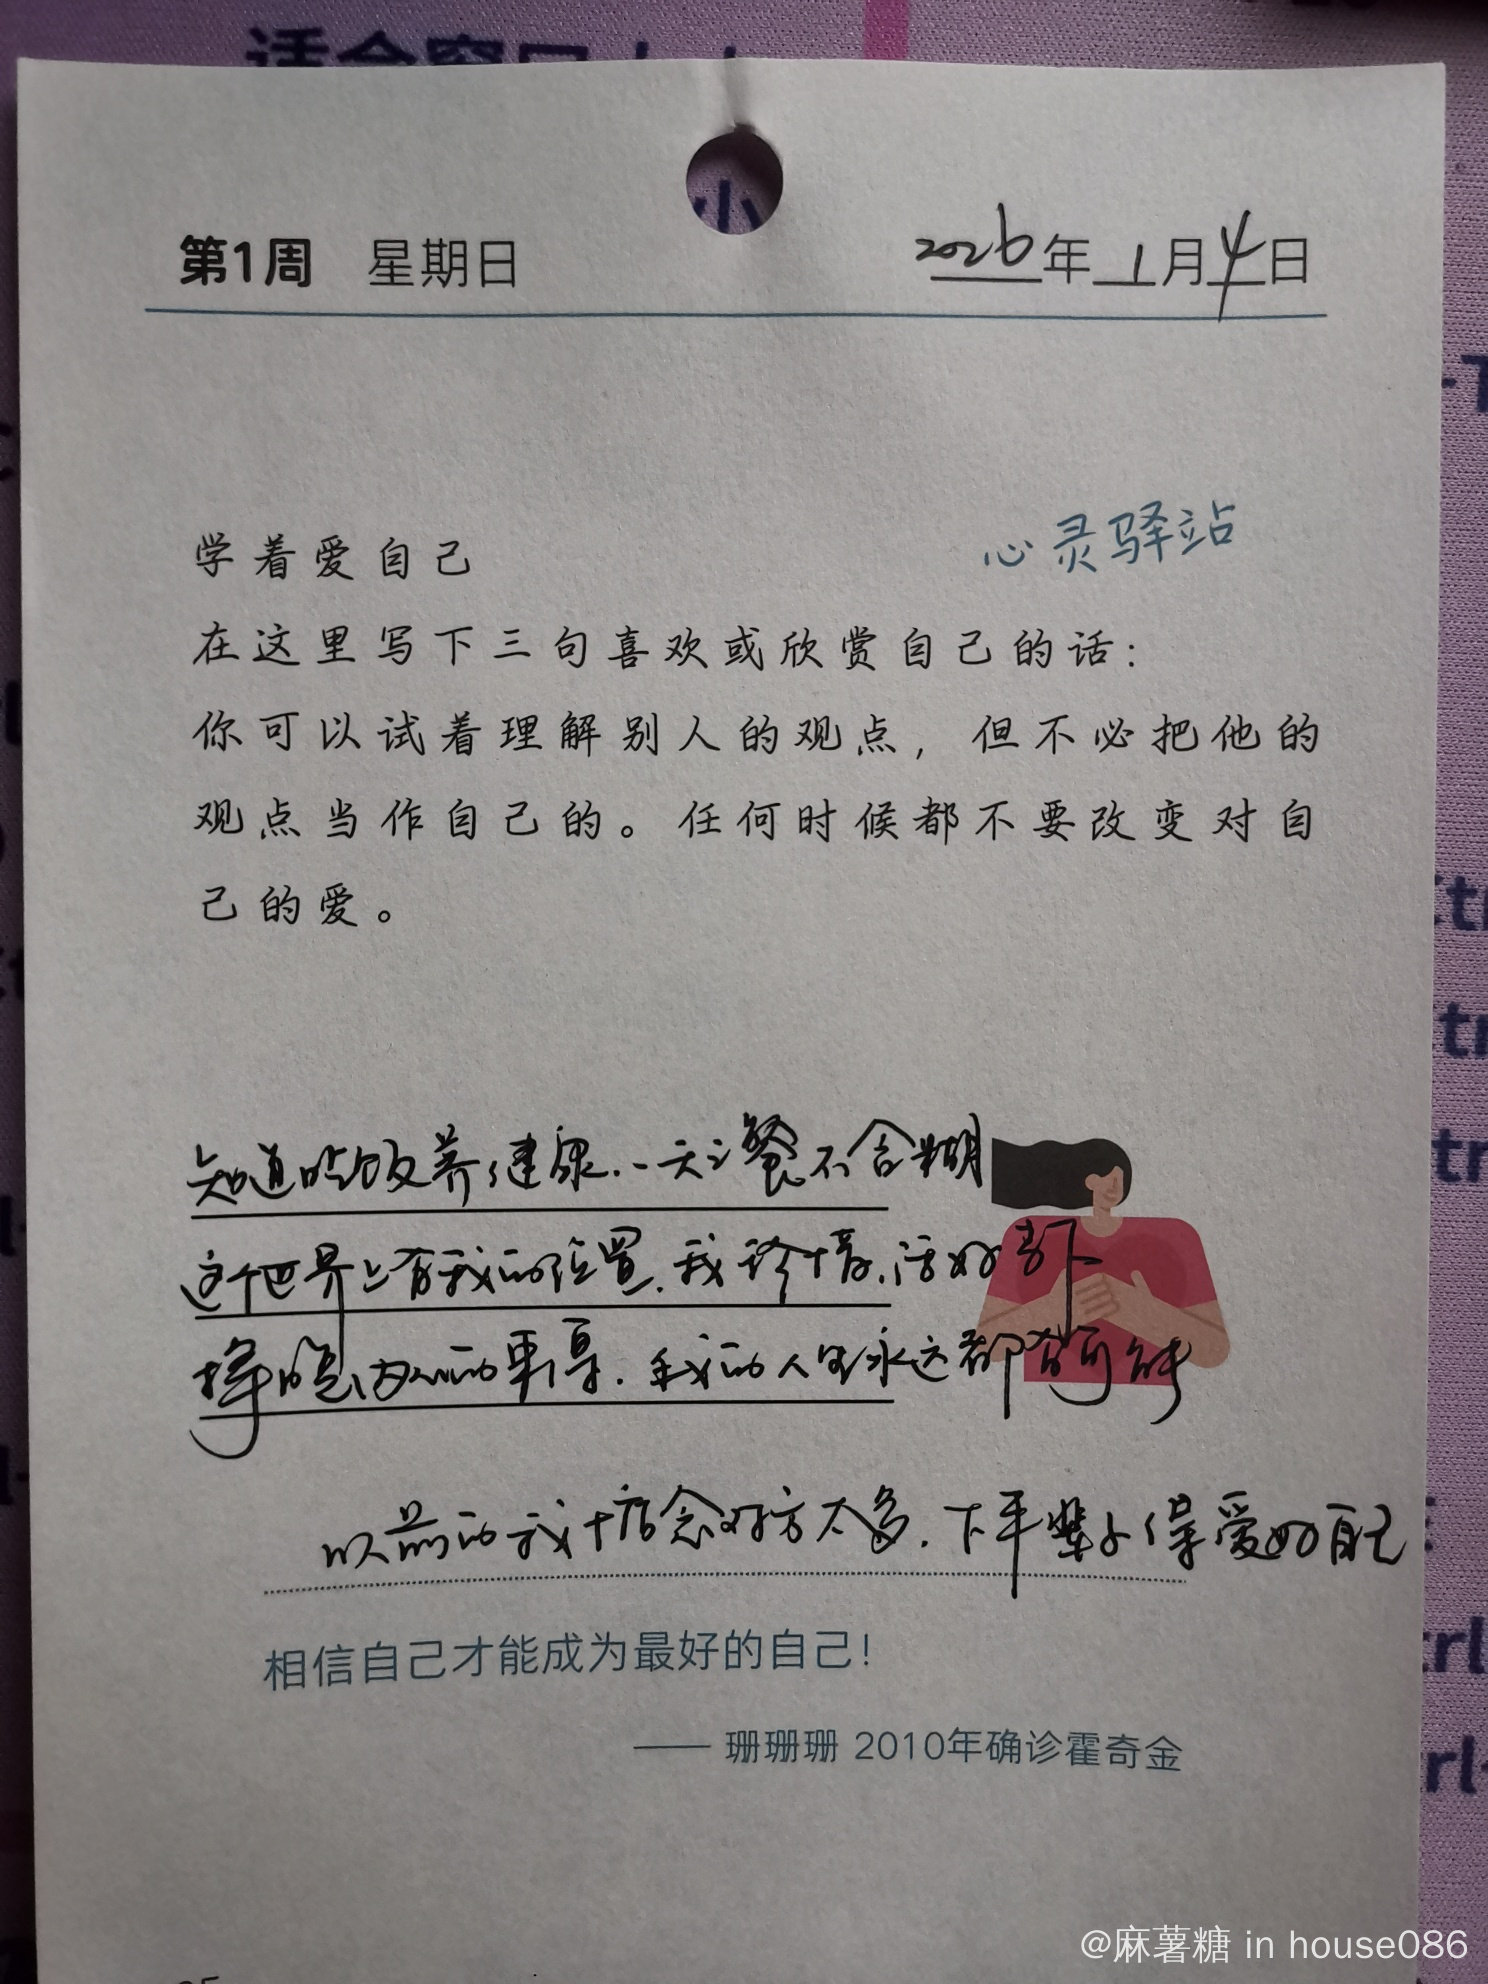 适合窗口大小
第1周 星期日 2026年1月4日
心灵驿站
学着爱自己
在这里写下三句喜欢或欣赏自己的话：
你可以试着理解别人的观点，但不必把他的
观点当作自己的。任何时候都不要改变对自
己的爱。
知道吃饭养健康.一天三餐不含糊
这个世界上有我的位置.我珍惜.活好当下
择的.我的人生永远都有可能
以前的我十信念对方太多.下半辈子得爱好自己
相信自己才能成为最好的自己！
—— 珊珊珊 2010年确诊霍奇金
@麻薯糖 in house086